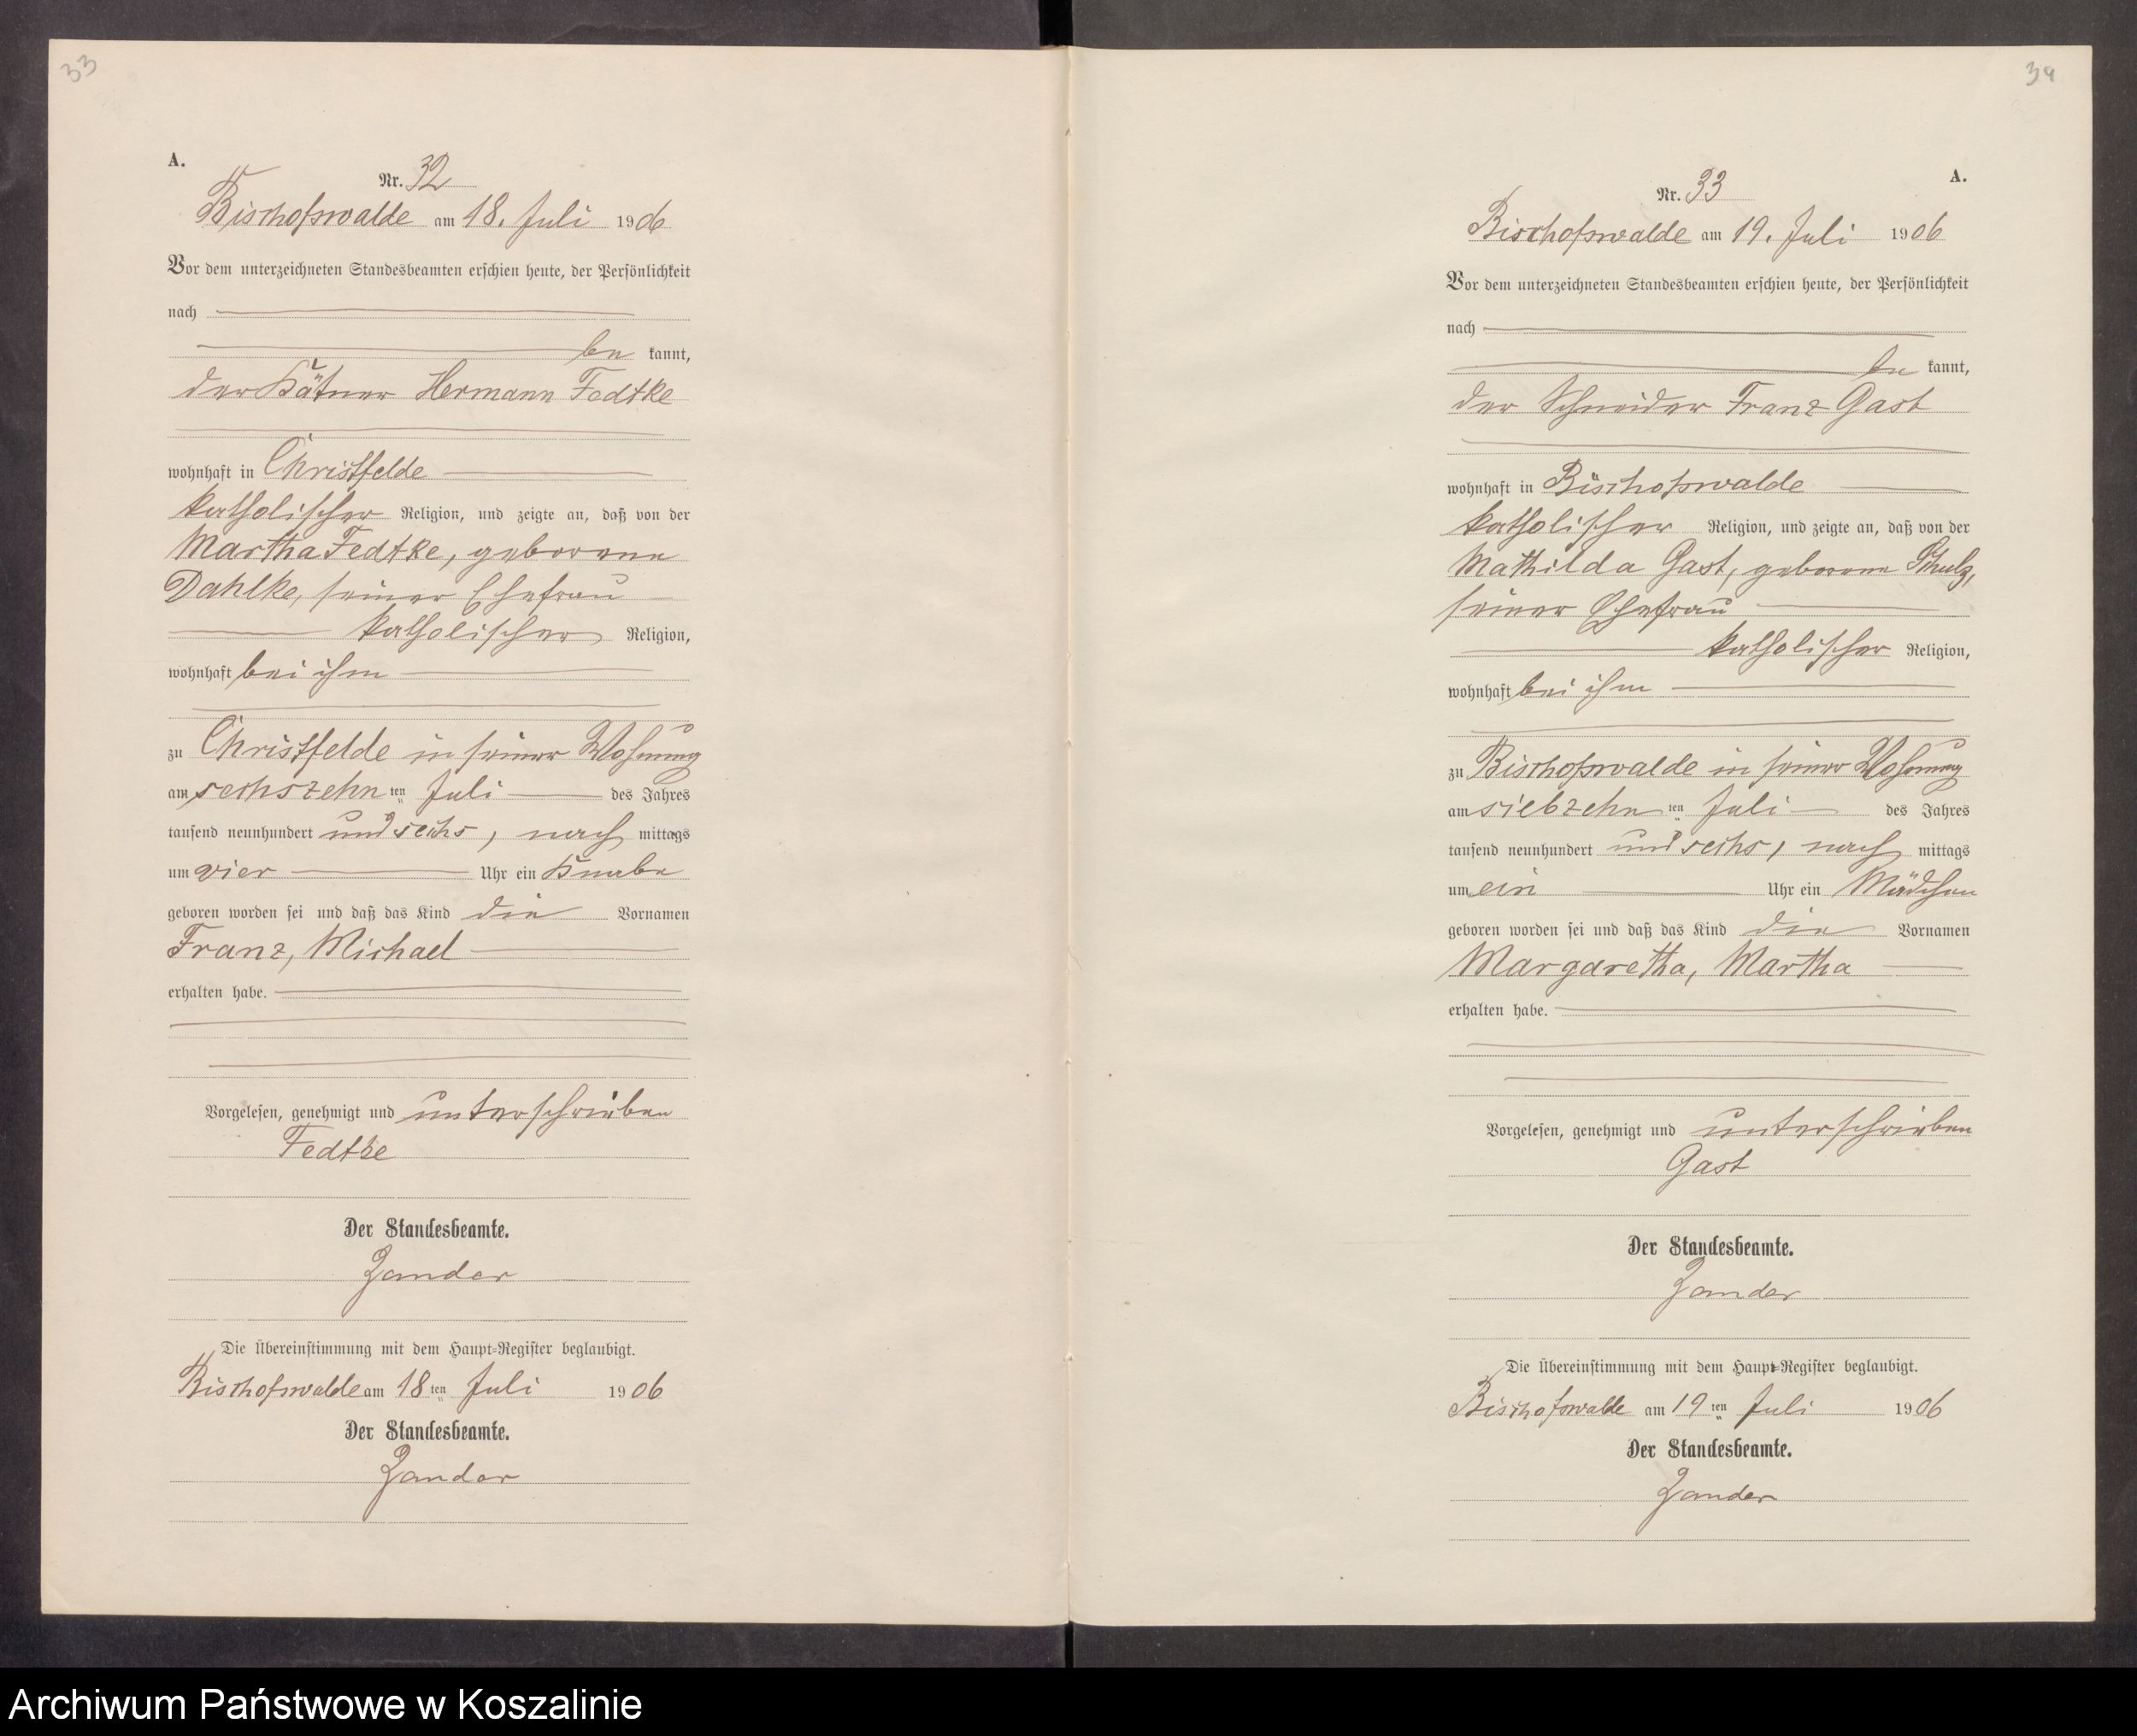 33
A.
Nr. 32
Bischofswalde am 18. Juli 1906
Vor dem unterzeichneten Standesbeamten erschien heute, der Persönlichkeit
nach
be kannt,
der Kätner Hermann Fedtke
wohnhaft in Christfelde
katholischer Religion, und zeigte an, daß von der
Martha Fedtke, geborene
Dahlke, seiner Ehefrau
katholischer Religion,
wohnhaft bei ihm
zu Christfelde in seiner Wohnung
am sechszehn ten Juli des Jahres
tausend neunhundert und sechs, nach mittags
um vier Uhr ein Knabe
geboren worden sei und daß das Kind die Vornamen
Franz, Michael
erhalten habe.
Vorgelesen, genehmigt und unterschrieben
Fedtke
Der Standesbeamte.
Zander
Die Übereinstimmung mit dem Haupt-Register beglaubigt.
Bischofswalde am 18 ten Juli 1906
Der Standesbeamte.
Zander
34
A.
Nr. 33
Bischofswalde am 19. Juli 1906
Vor dem unterzeichneten Standesbeamten erschien heute, der Persönlichkeit
nach
be kannt,
der Schneider Franz Gast
wohnhaft in Bischofswalde
katholischer Religion, und zeigte an, daß von der
Mathilda Gast, geborene Schulz,
seiner Ehefrau
katholischer Religion,
wohnhaft bei ihm
zu Bischofswalde in seiner Wohnung
am siebzehn ten Juli des Jahres
tausend neunhundert und sechs, nach mittags
um ein Uhr ein Mädchen
geboren worden sei und daß das Kind die Vornamen
Margaretha, Martha
erhalten habe.
Vorgelesen, genehmigt und unterschrieben
Gast
Der Standesbeamte.
Zander
Die Übereinstimmung mit dem Haupt-Register beglaubigt.
Bischofswalde am 19 ten Juli 1906
Der Standesbeamte.
Zander
Archiwum Państwowe w Koszalinie